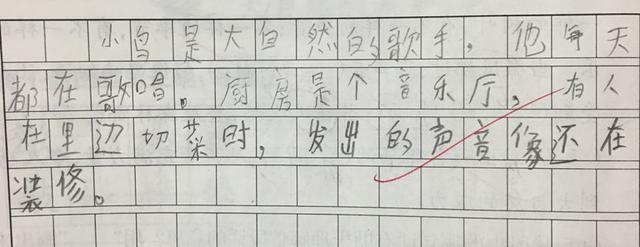 小鸟是大自然的歌手，他每天
都在歌唱。厨房是个音乐厅，有人
在里边切菜时，发出的声音像还在
装修。